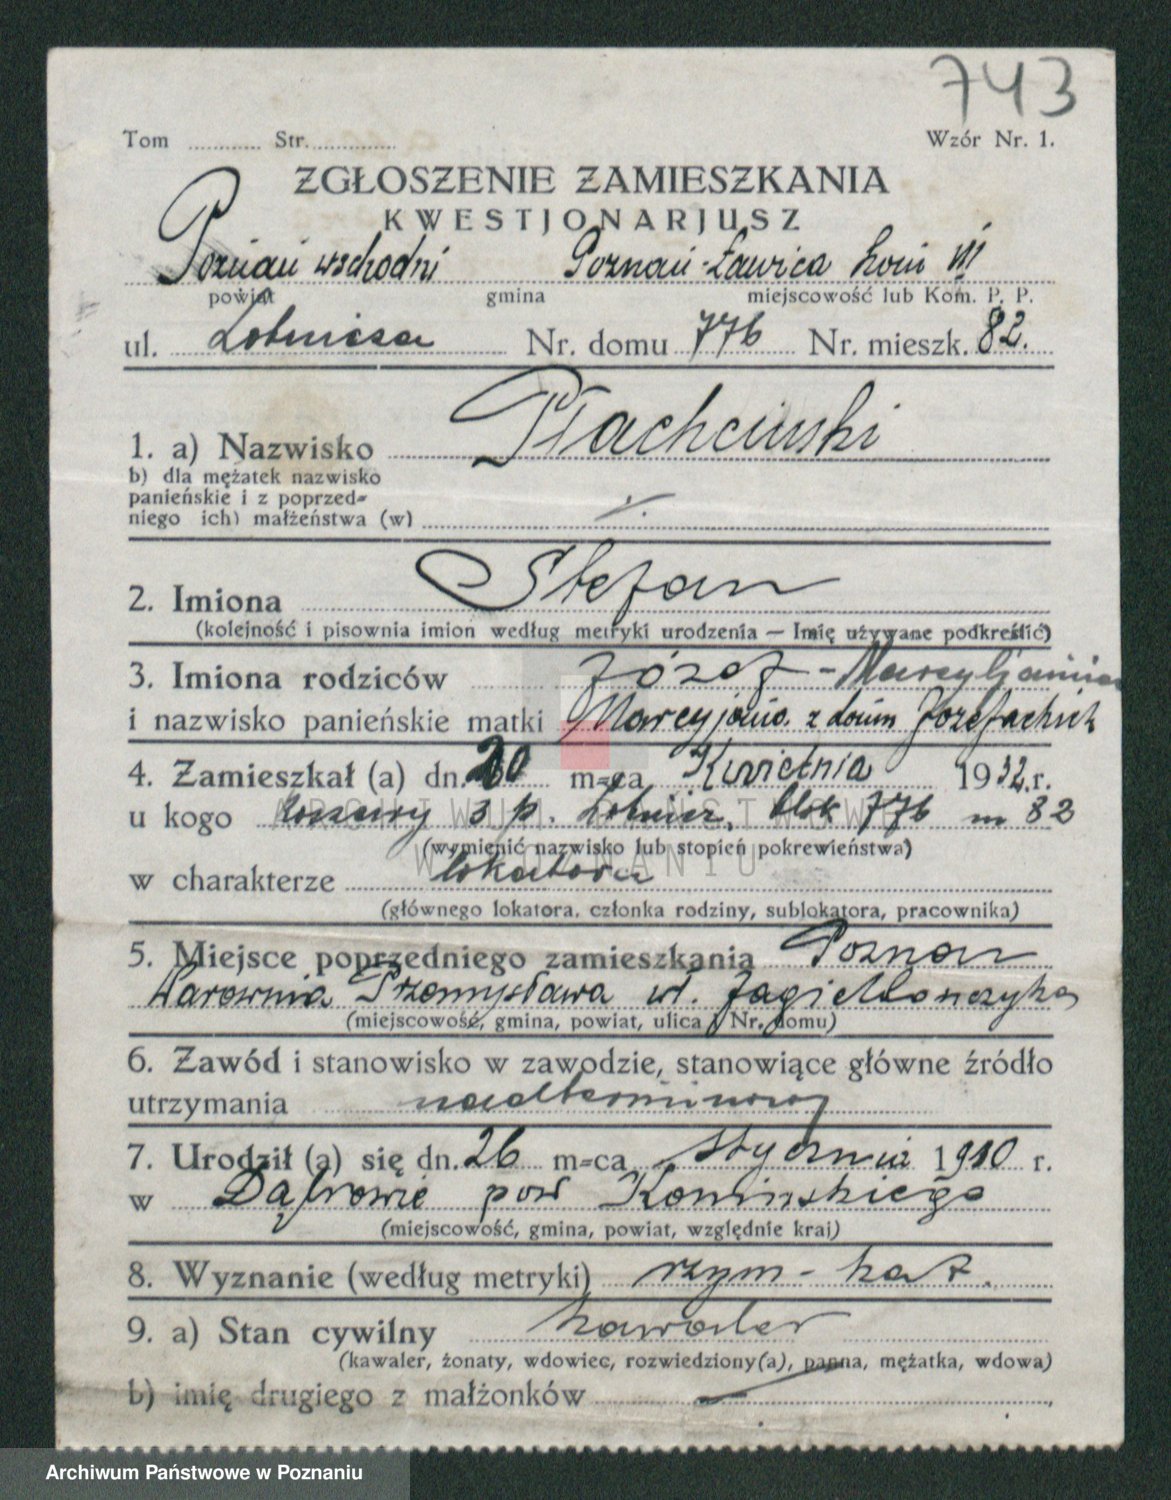 743
Tom ........... Str. .............. Wzór Nr. 1.
ZGŁOSZENIE ZAMIESZKANIA
KWESTJONARJUSZ
Poznań wschodni Poznań-Ławica VII
powiat gmina miejscowość lub Kom. P. P.
ul. Lotnicza Nr. domu 776 Nr. mieszk. 82.
1. a) Nazwisko Płachciński
b) dla mężatek nazwisko
panieńskie i z poprzed-
niego ich) małżeństwa (w)
2. Imiona Stefan
(kolejność i pisownia imion według metryki urodzenia — Imię używane podkreślić)
3. Imiona rodziców Józef -
i nazwisko panieńskie matki z doum
4. Zamieszkał (a) dn. 20 m-ca Kwietnia 1932 r.
u kogo koszary 3 p. Lotnicz. blok 776 m 82
(wymienić nazwisko lub stopień pokrewieństwa)
ARCHIWUM PAŃSTWOWE
W POZNANIU
w charakterze lokatora
(głównego lokatora, członka rodziny, sublokatora, pracownika)
5. Miejsce poprzedniego zamieszkania Poznan
Warownia Przemysława ul. Jagiellończyka
(miejscowość, gmina, powiat, ulica i Nr. domu)
6. Zawód i stanowisko w zawodzie, stanowiące główne źródło
utrzymania nadterminowy
7. Urodził (a) się dn. 26 m-ca stycznia 1910 r.
w Dąbrowie pow Konińskiego
(miejscowość, gmina, powiat, względnie kraj)
8. Wyznanie (według metryki) rzym-kat.
9. a) Stan cywilny kawaler
(kawaler, żonaty, wdowiec, rozwiedziony(a), panna, mężatka, wdowa)
b) imię drugiego z małżonków
Archiwum Państwowe w Poznaniu